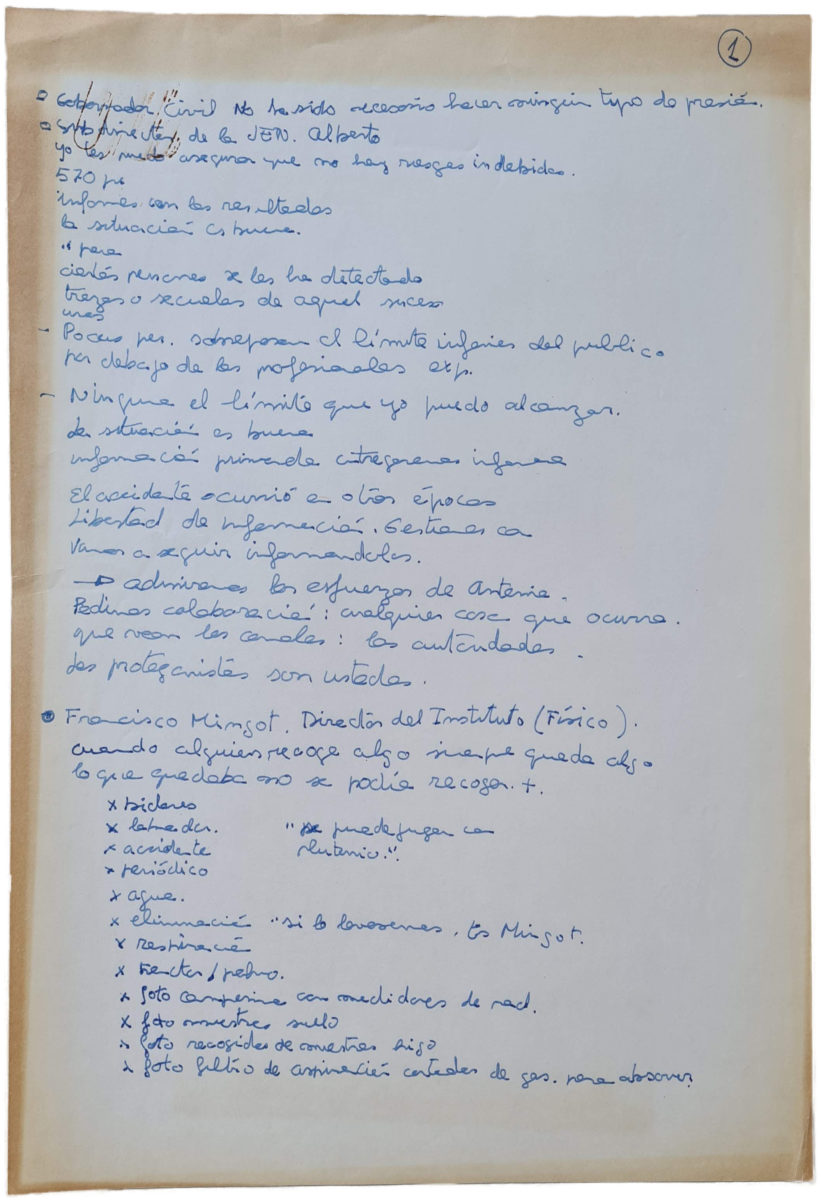 1
Gobernador Civil No ha sido necesario hacer ningún typo de presión.
Subdirector de la JEN. Alberto
yo les puedo asegurar que no hay riesgos indebidos.
570 pe
informes con los resultados
la situación es buena.
" para
ciertas personas se les ha detectado
trazas o secuelas de aquel suceso
unas
- Pocas per. sobrepasan el límite inferior del publico
por debajo de los profesionales exp.
- Ninguna el límite que yo puedo alcanzar.
La situación es buena
información privada entregaremos informe
El accidente ocurrió en otras épocas
Libertad de información. Gestiones con
Vamos a seguir informandolos.
→ admiramos los esfuerzos de Antonia.
Pedimos colaboración: cualquier cosa que ocurra.
que vean los canales: las autoridades.
Los protagonistas son ustedes.
Francisco Mingot. Director del Instituto (Físico).
cuando alguien recoge algo siempre queda algo
lo que quedaba no se podía recoger. +.
x bidones
x labrador. "se puede jugar con
x accidente Plutonio.".
x periódico
x agua.
x eliminació "si lo lavasemos. Es Mingot.
x respiració
x tractor / polvo.
x foto campesina con medidores de rad.
x foto muestras suelo
x foto recogidas de muestras higo
x foto filtro de aspiración de gas. para absorver